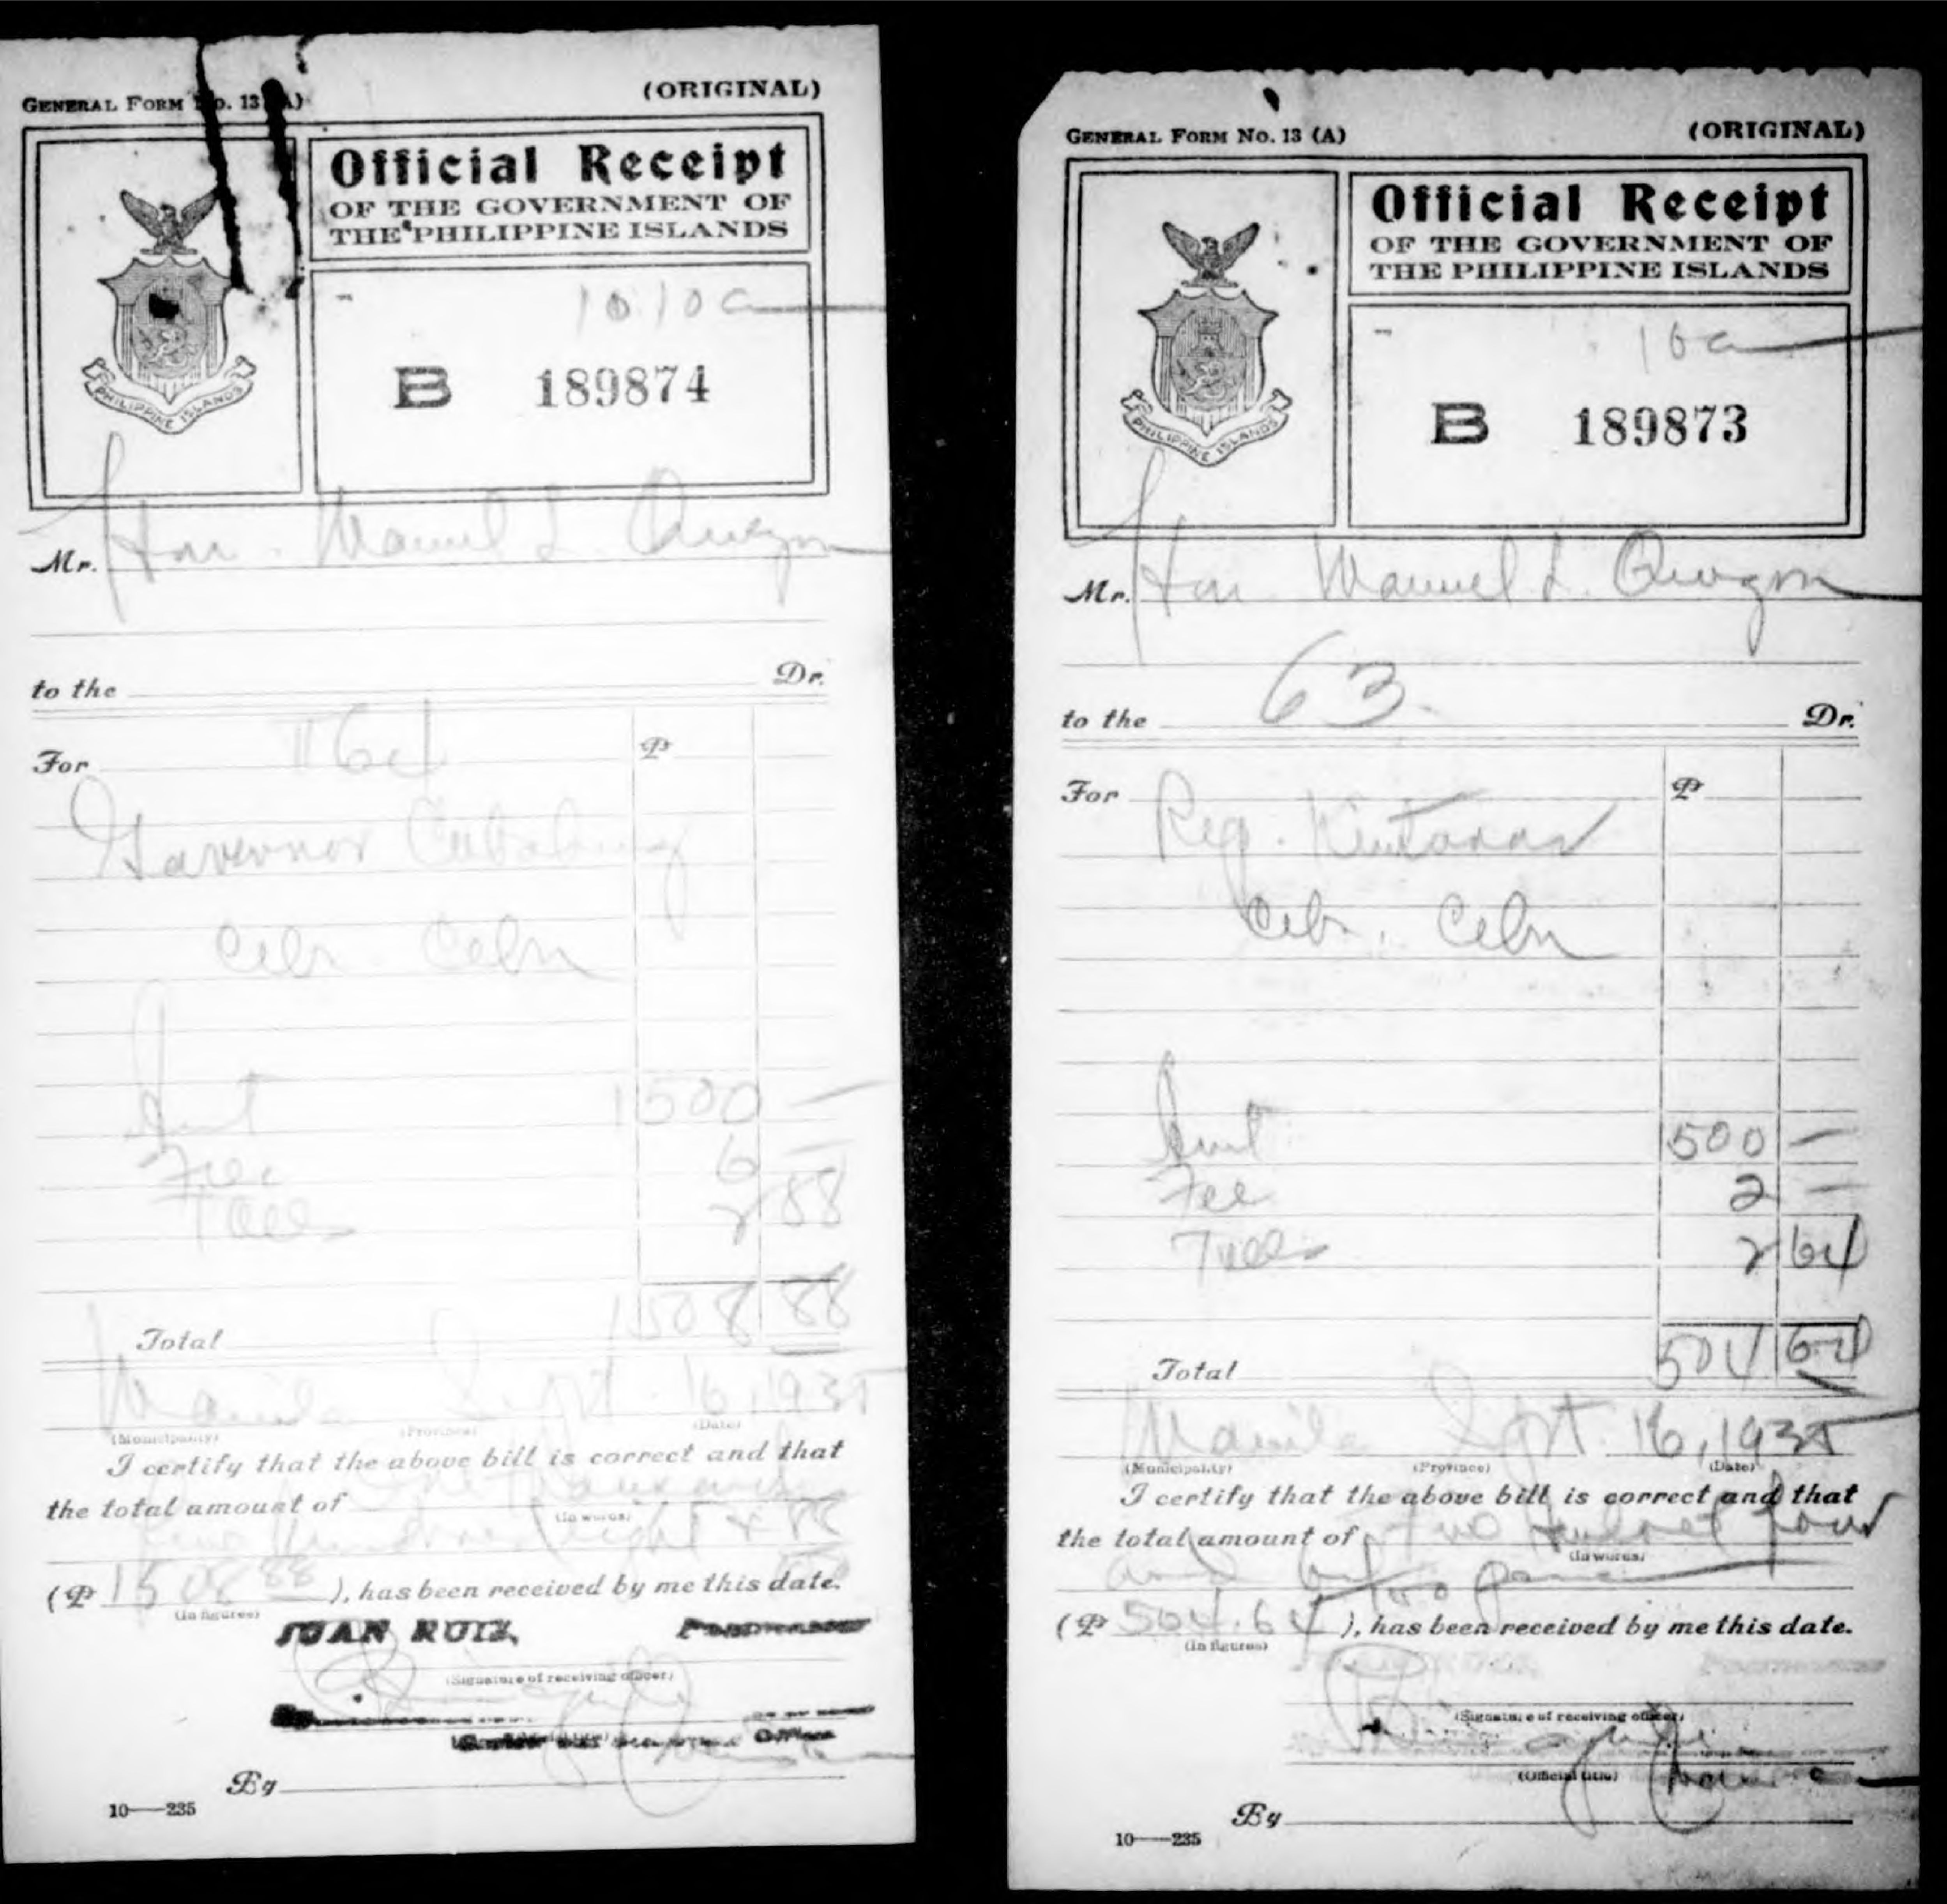 GENERAL FORM No. 13 (A)
(ORIGINAL)
Official Receipt
OF THE GOVERNMENT OF
THE PHILIPPINE ISLANDS
PHILIPPINE ISLANDS
10 10 a
B 189874
Mr. Hon. Manuel L. Quezon
to the Dr.
For T64 ₱
Governor Cabahug
Ceb. Cebu
Amt 1500 —
Fee 6 —
Tolls 2 88
Total 1508 88
Manila Sept. 16, 1935
(Municipality) (Province) (Date)
I certify that the above bill is correct and that
the total amount of One thousand
(In words)
five hundred eight & 88
(₱ 1508 88 ), has been received by me this date.
(In figures)
JUAN RUIZ,
(Signature of receiving officer)
By
10—235
GENERAL FORM No. 13 (A)
(ORIGINAL)
Official Receipt
OF THE GOVERNMENT OF
THE PHILIPPINE ISLANDS
PHILIPPINE ISLANDS
10 a
B 189873
Mr. Hon. Manuel L. Quezon
to the 63. Dr.
For ₱
Rep. Kintanar
Ceb. Cebu
Amt 500 —
Fee 2 —
Tolls 2 64
Total 504 64
Manila Sept. 16, 1935
(Municipality) (Province) (Date)
I certify that the above bill is correct and that
the total amount of five hundred four
(In words)
and 64/100
(₱ 504.64 ), has been received by me this date.
(In figures)
(Signature of receiving officer)
(Official title)
By
10—235